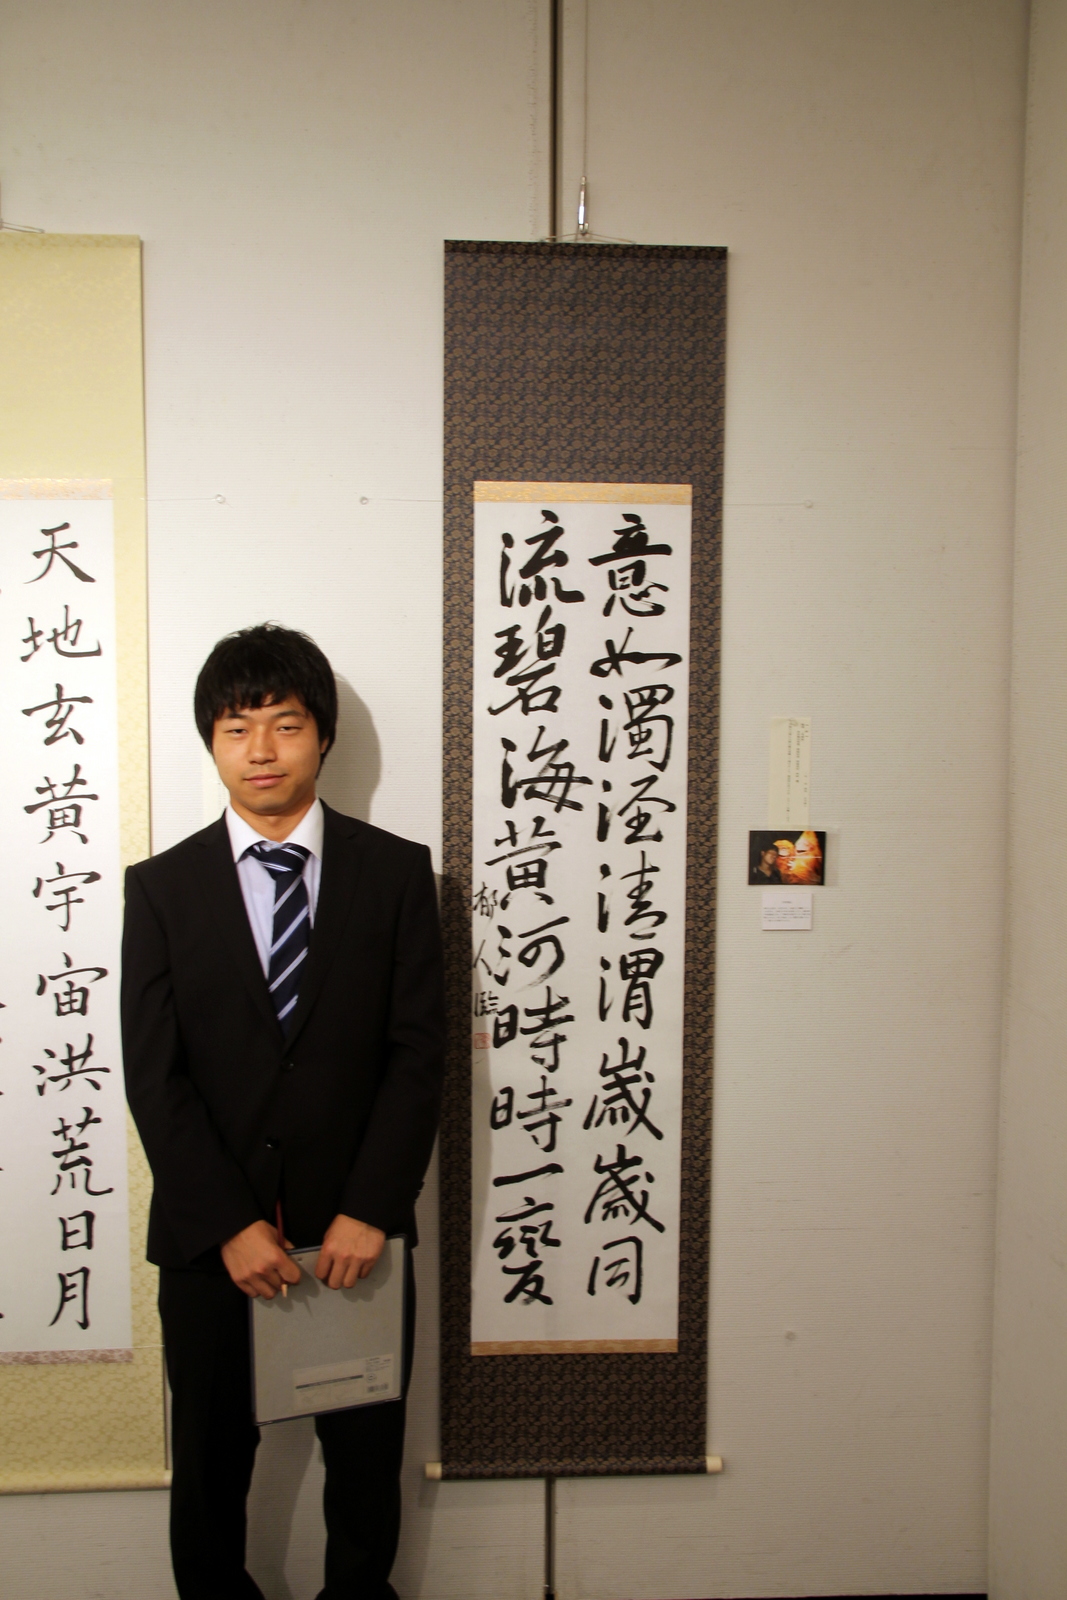 意如濁涇清渭歳歳同
流碧海黄河時時一變
郁人臨
天地玄黄宇宙洪荒日月